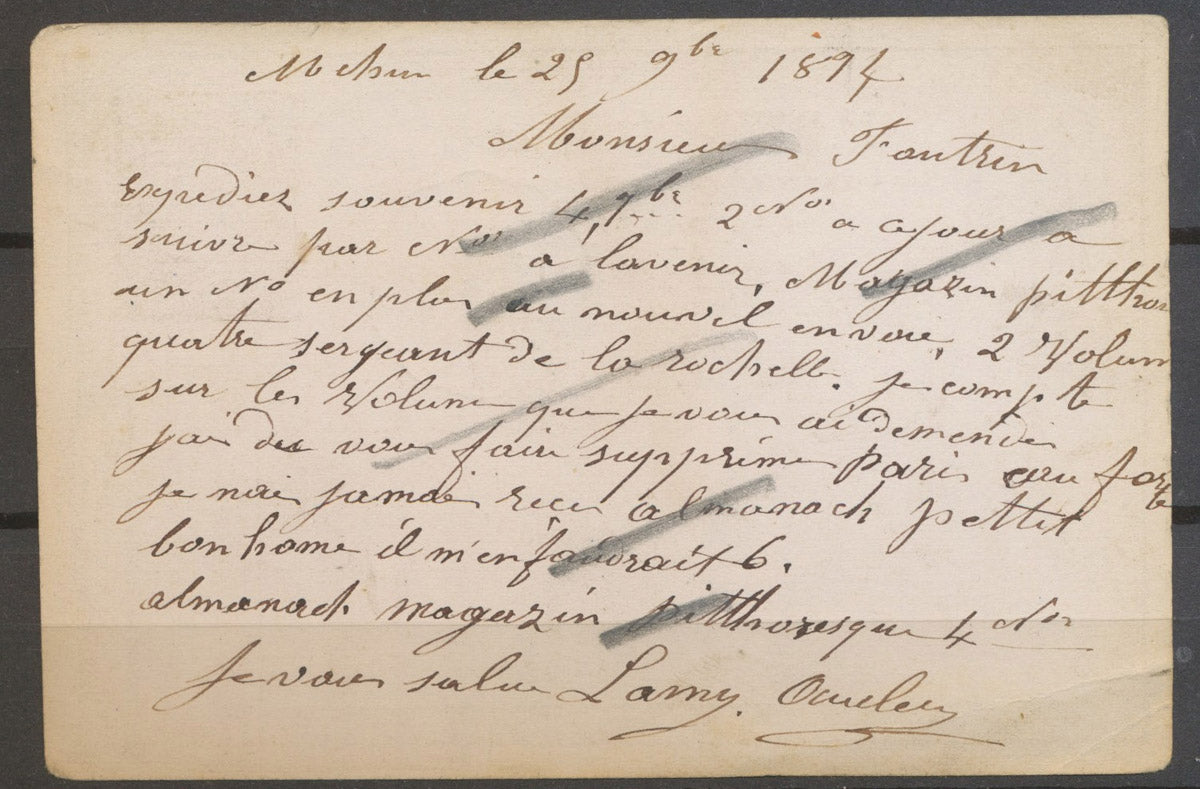 Mehun le 25 9bre 1894
Monsieur Fautrin
Expediez souvenir 4, 7bre 2 Nos a ajour a
suivre par Nos a lavenir, Magazin pitthores
un No en plus au nouvel envoie, 2 Volum
quatre sergeant de la rochelle. je compte
sur les Volume que je vous ai demendé
jai du vous faire supprimé paris
je nai jamais recu almanach pettit
bonhome il m'en faudrait 6.
almanach magazin pitthoresque 4 Nos
Je vous salue Lamy.